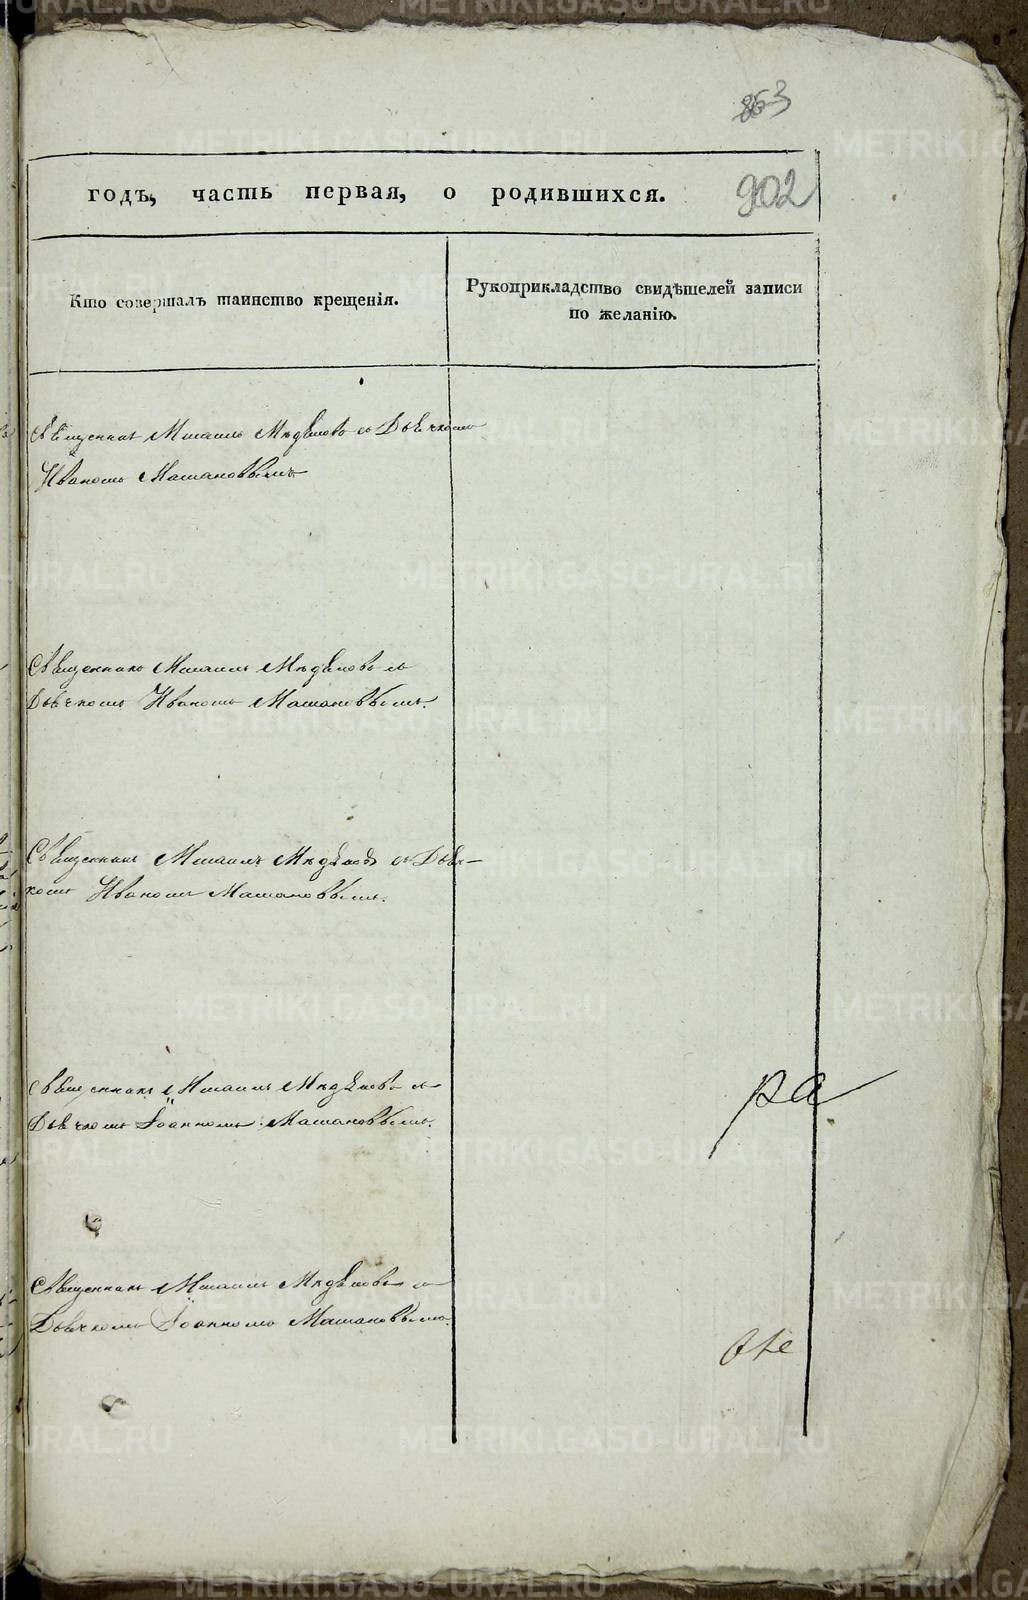 853
902
годъ, часть первая, о родившихся.
Кто совершалъ таинство крещенія.
Рукоприкладство свидѣтелей записи
по желанію.
Священникъ Михаилъ съ Дьячкомъ
Иваномъ Машановымъ
Священникъ Михаилъ съ
Дьячкомъ Иваномъ Машановымъ.
Священникъ Михаилъ съ Дьяч-
комъ Иваномъ Машановымъ.
Священникъ Михаилъ съ
Дьячкомъ Іоанномъ Машановымъ.
Священникъ Михаилъ съ
Дьячкомъ Іоанномъ Машановымъ.
ра
METRIKI.GASO-URAL.RU